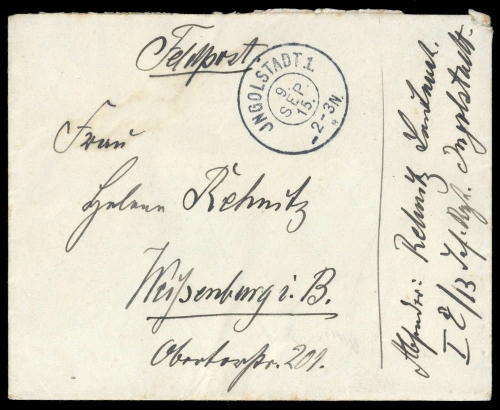 Feldpost.
JNGOLSTADT.1.
9
SEP.
15.
-2-3N.
Frau
Helene Rehnitz
Weißenburg i. B.
Obertorstr. 201.
Absender: Rehnitz
I E/13 Inf. Rgt. Ingolstadt.